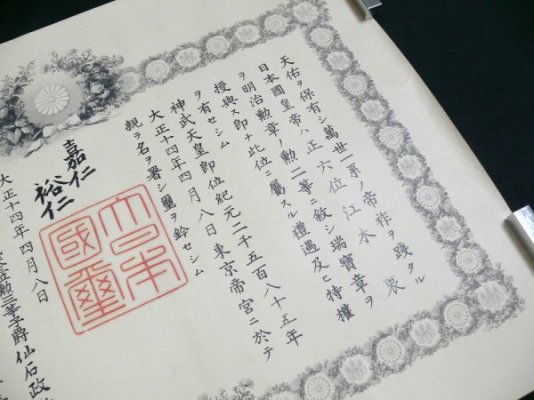 天佑ヲ保有シ萬世一系ノ帝祚ヲ踐タル
日本國皇帝ハ正六位江木衷
ヲ明治勲章ノ勲二等ニ敘シ瑞寶章ヲ
授與ス即チ此位ニ屬スル禮遇及ヒ特權
ヲ有セシム
神武天皇即位紀元二千五百八十五年
大正十四年四月八日東京帝宮ニ於テ
親ラ名ヲ署シ璽ヲ鈐セシム
嘉仁
裕仁
大日本
國璽
大正十四年四月八日
勲二等子爵仙石政